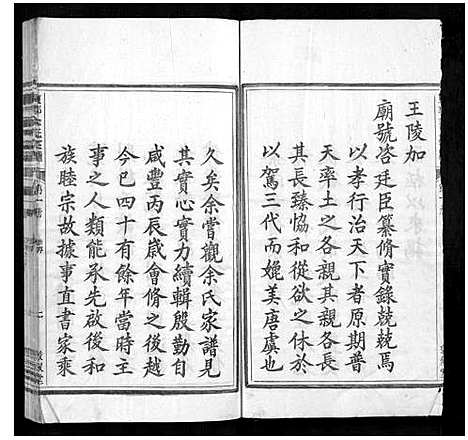 王陵加
廟號咨廷臣纂脩實錄兢兢焉
以孝行治天下者原期普
天率土之各親其親各長
其長臻恊和從欲之休於
以駕三代而媲美唐虞也
久矣余嘗觀余氏家譜見
其實心實力續輯殷勤自
咸豐丙辰歲會脩之後越
今巳四十有餘年當時立
事之人類能承先啟後和
族睦宗故據事直書家乘